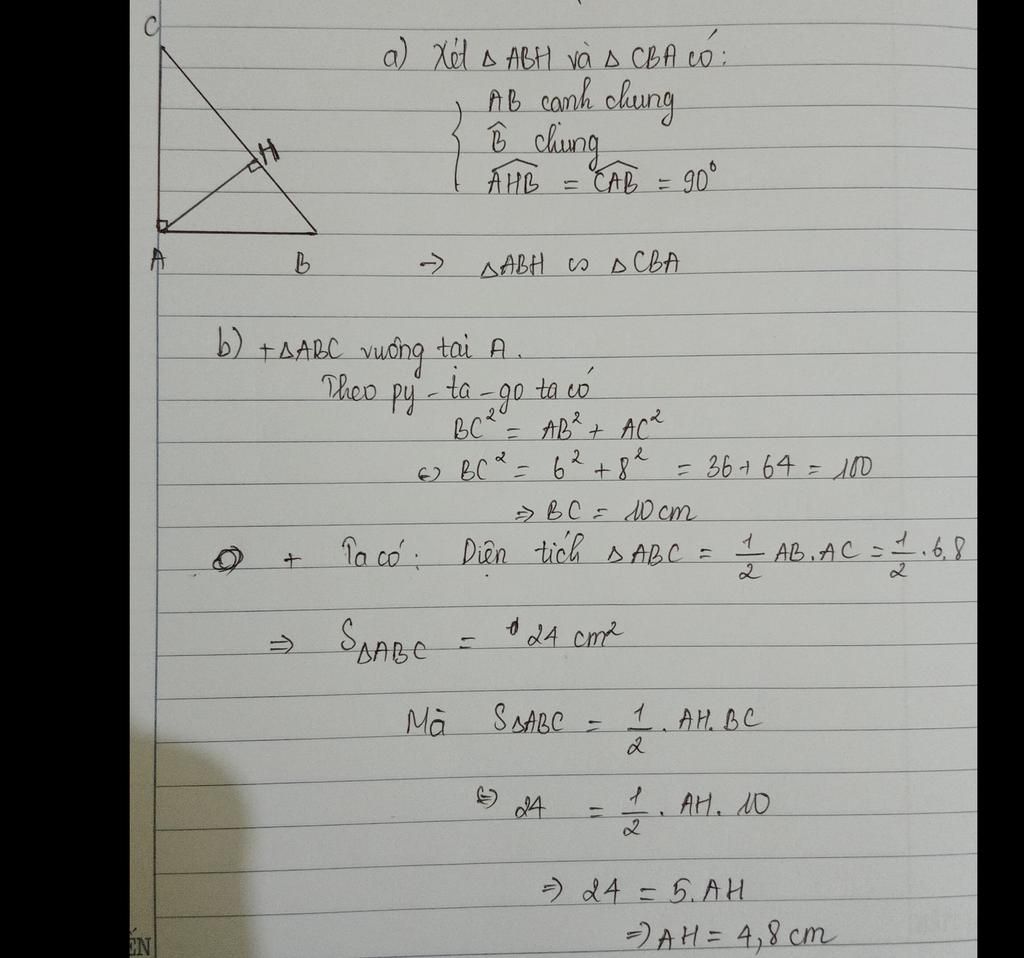 C
H
A
B
a) Xét △ ABH và △ CBA có:
AB cạnh chung
B̂ chung
AHB = CAB = 90°
→ △ABH ∽ △CBA
b) + △ABC vuông tại A.
Theo py-ta-go ta có
BC² = AB² + AC²
⇔ BC² = 6² + 8² = 36 + 64 = 100
⇒ BC = 10 cm
+ Ta có: Diện tích △ABC = 1/2 AB.AC = 1/2 . 6.8
⇒ S△ABC = 24 cm²
Mà S△ABC = 1/2 . AH.BC
⇔ 24 = 1/2 . AH. 10
⇒ 24 = 5.AH
⇒ AH = 4,8 cm
ẾN